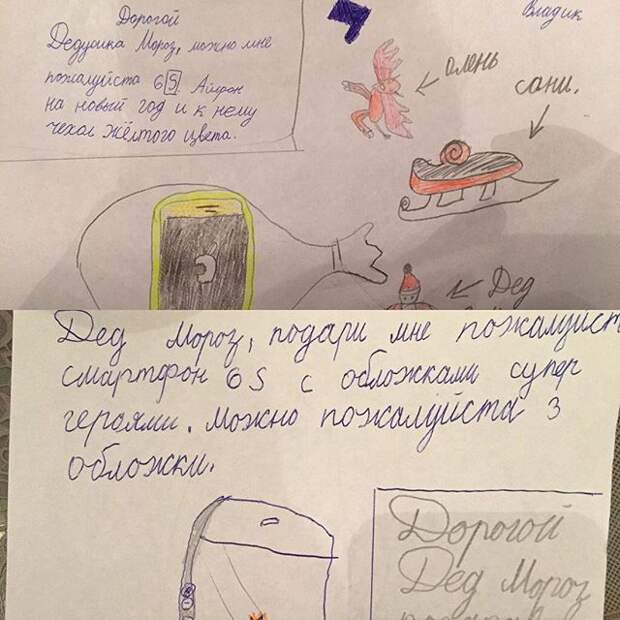 Дорогой
Дедушка Мороз, можно мне
пожалуйста 6S. Айфон
на новый год и к нему
чехол жёлтого цвета.
Владик
олень
сани.
Дед
Дед Мороз, подари мне пожалуйст
смартфон 6S с обложками супер
героями. Можно пожалуйста 3
обложки.
Дорогой
Дед Мороз